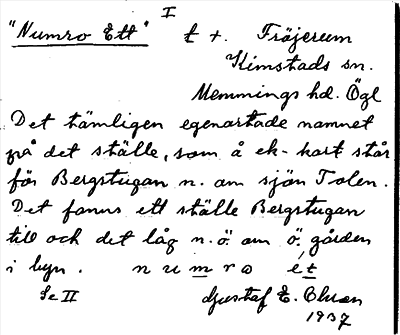 I
"Numro Ett" t +. Fröjerum
Kimstads sn.
Memmings hd. Ögl
Det tämligen egenartade namnet
på det ställe, som å ek-kart står
för Bergstugan n. om sjön Tolen.
Det fanns ett ställe Bergstugan
till och det låg n.ö. om ö. gården
i byn. numro ét
Se II Gustaf E. Ohsson
1937